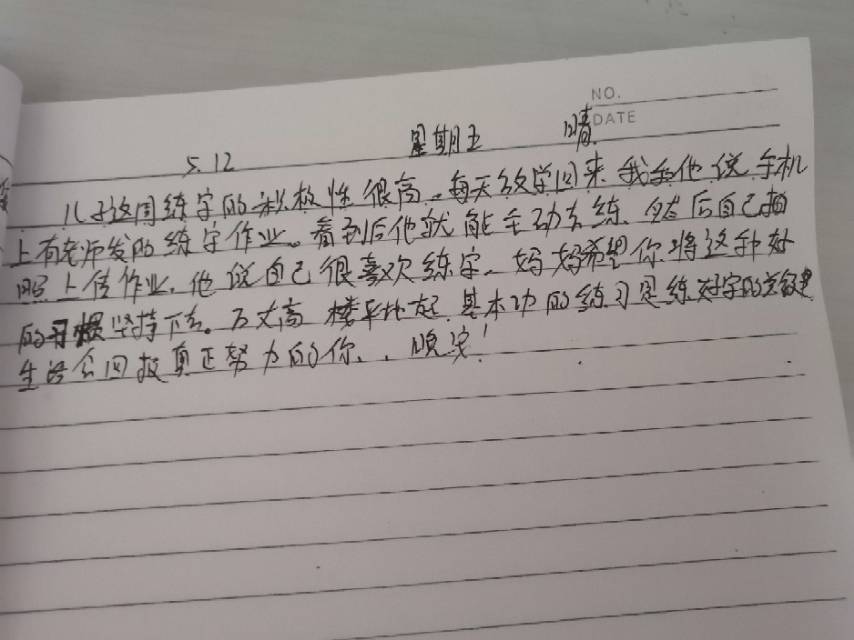 NO.
DATE
5.12 星期五 晴
儿子这周练字的积极性很高。每天放学回来我和他说手机
上有老师发的练字作业。看到后他就能主动去练，然后自己拍
照上传作业，他说自己很喜欢练字。妈妈希望你将这种好
的习惯坚持下去。万丈高楼平地起，基本功的练习是练好字的关键
生活会回报真正努力的你。晚安！